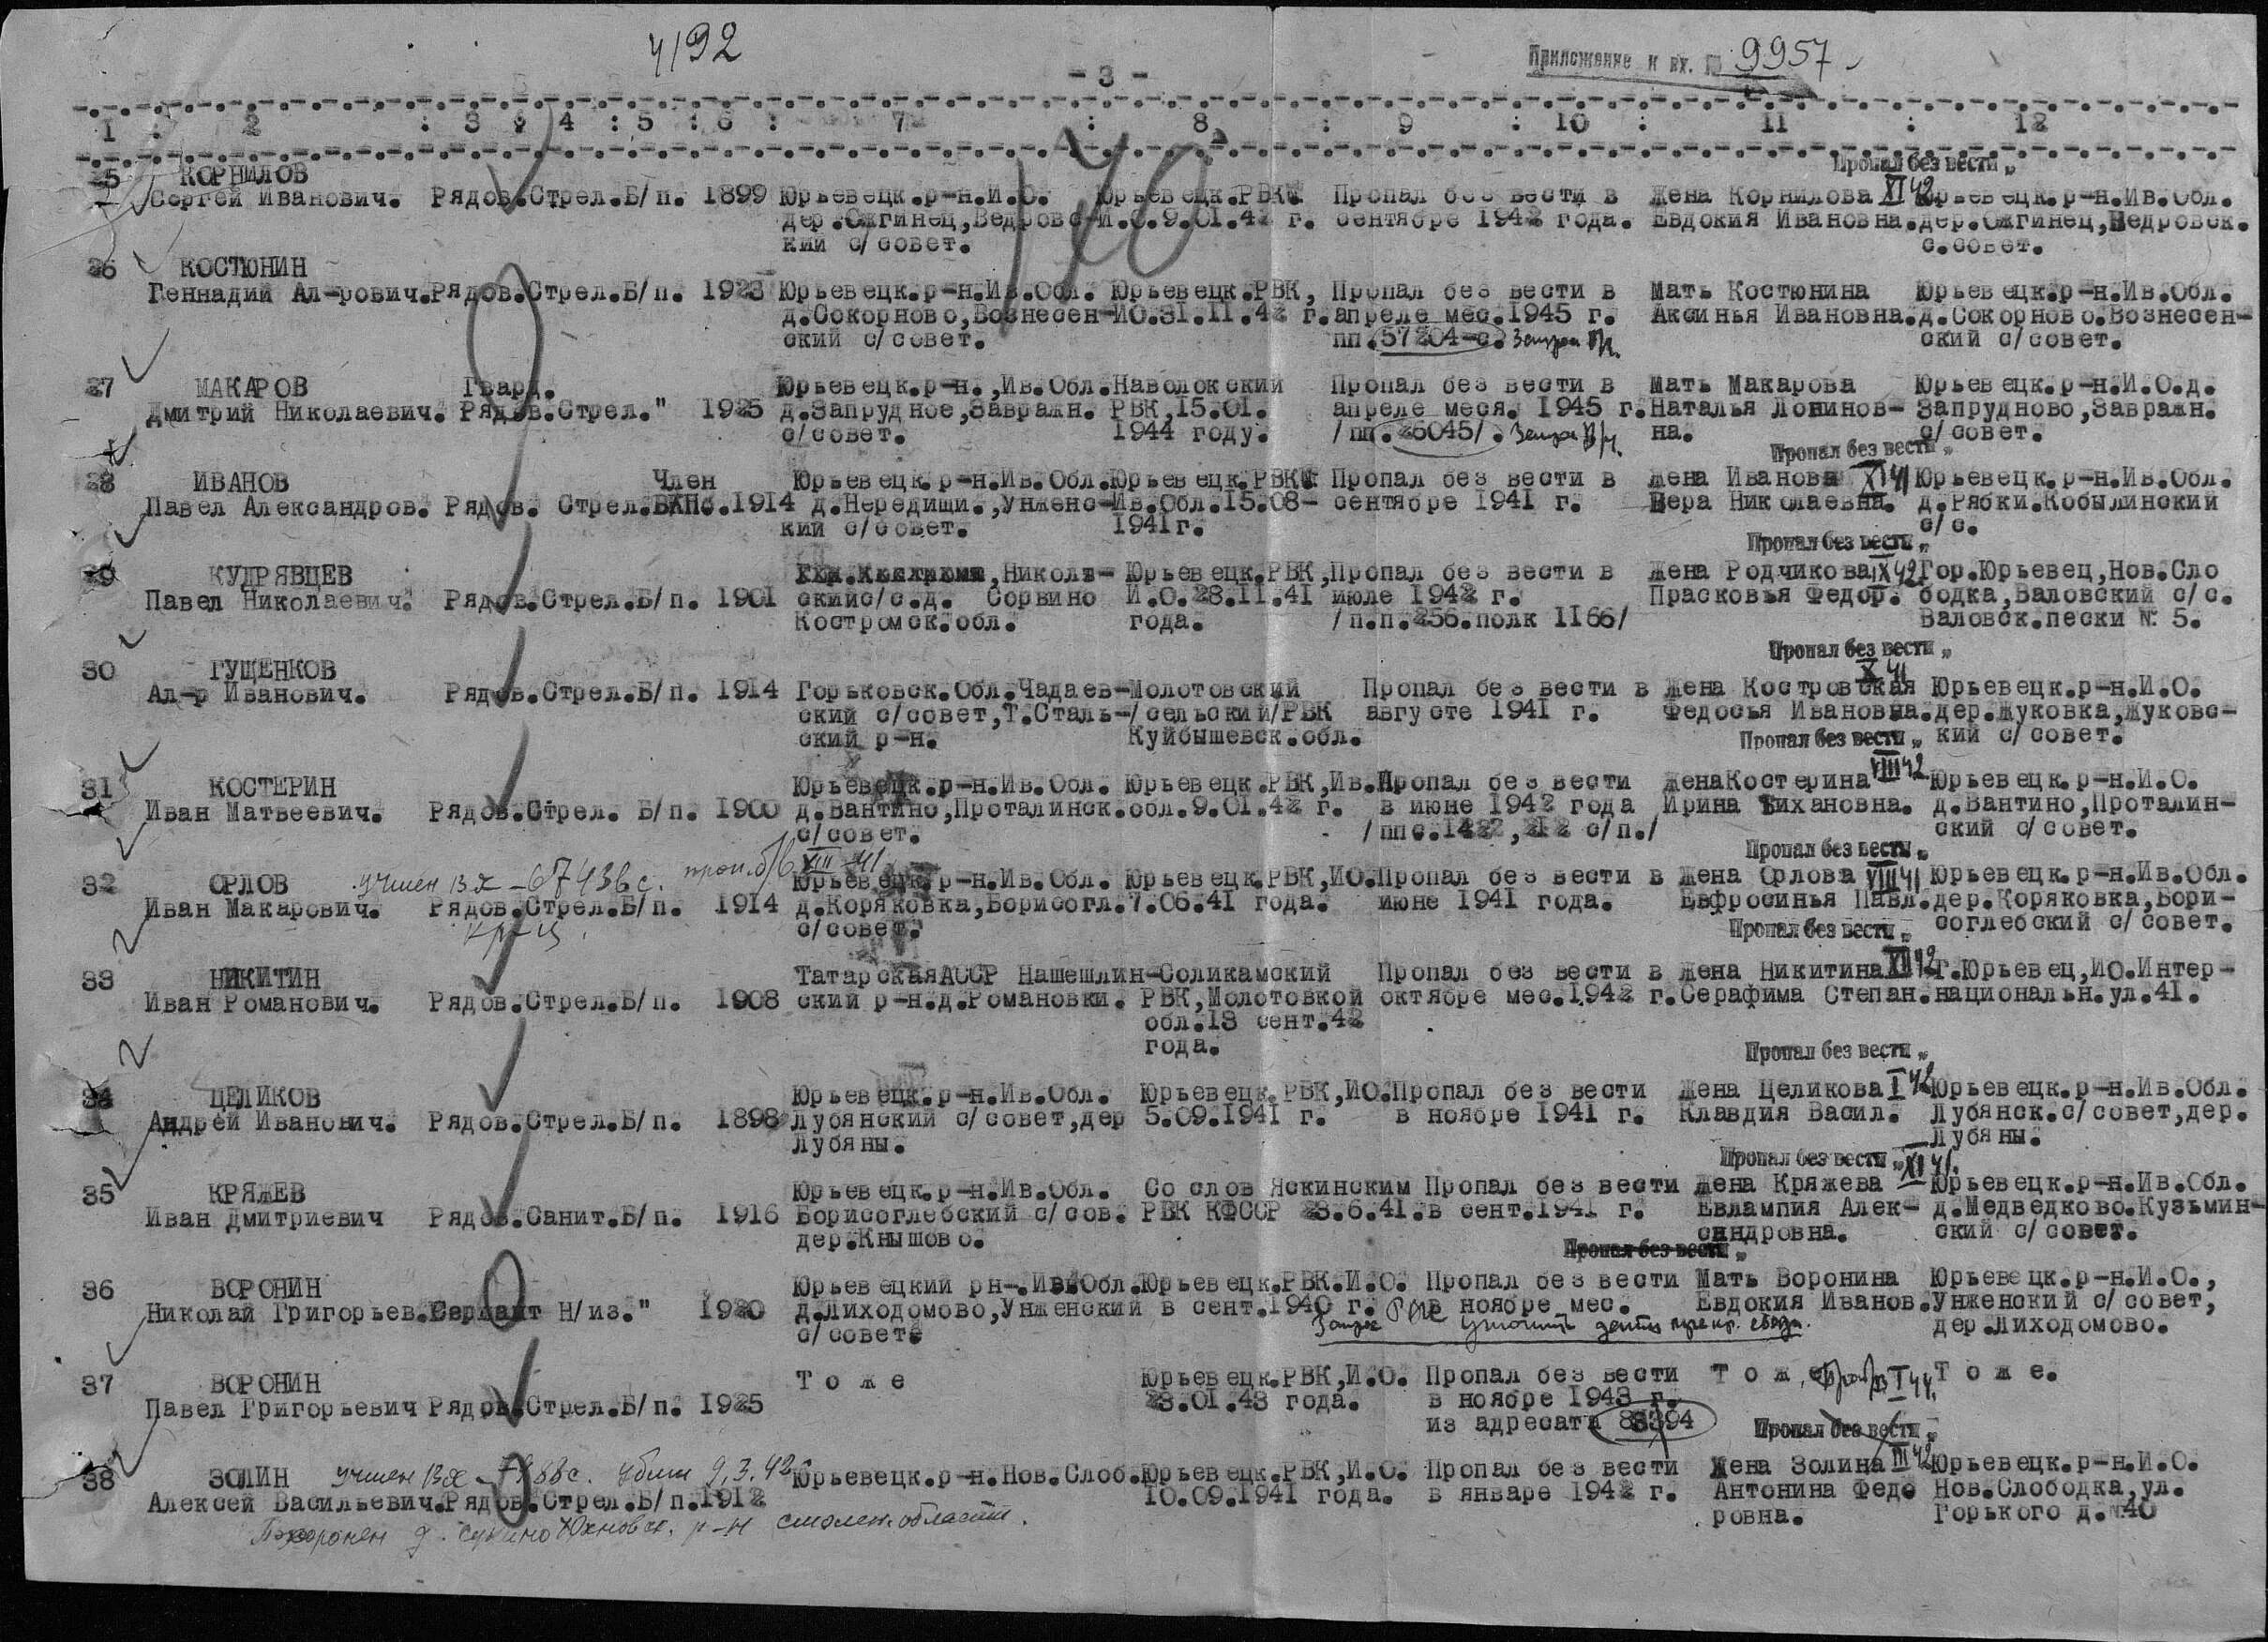 4192
Приложение к вх. № 9957
- 3 -
1 : 2 : 3 : 4 : 5 : 6 : 7 : 8 : 9 : 10 : 11 : 12
170
Пропал без вести „ XI 42
25 КОРНИЛОВ
Сергей Иванович. Рядов.Стрел.Б/п. 1899 Юрьевецк.р-н.И.О. Юрьевецк.РВК Пропал без вести в Жена Корнилова Юрьевецк.р-н.Ив.Обл.
дер.Ожгинец,Ведровс-И.О.9.01.42 г. сентябре 1942 года. Евдокия Ивановна.дер.Ожгинец,Ведровск.
кий с/совет. с.совет.
26 КОСТЮНИН
Геннадий Ал-рович.Рядов.Стрел.Б/п. 1923 Юрьевецк.р-н.Ив.Обл. Юрьевецк.РВК, Пропал без вести в Мать Костюнина Юрьевецк.р-н.Ив.Обл.
д.Сокорново,Вознесен-ИО.31.11.42 г.апреле мес.1945 г. Аксинья Ивановна.д.Сокорново.Вознесен-
ский с/совет. пп.57204-с. ский с/совет.
27 МАКАРОВ Гвард. Юрьевецк.р-н.,Ив.Обл.Наволокский Пропал без вести в Мать Макарова Юрьевецк.р-н.И.О.д.
Дмитрий Николаевич. Рядов.Стрел." 1925 д.Запрудное,Завражн. РВК,15.01. апреле меся. 1945 г.Наталья Лонинов- Запрудново,Завражн.
с/совет. 1944 году. /пп.26045/. на. с/совет.
Пропал без вести „ XI 41
28 ИВАНОВ Член Юрьевецк.р-н.Ив.Обл.Юрьевецк.РВК Пропал без вести в Жена Иванова Юрьевецк.р-н.Ив.Обл.
Павел Александров. Рядов. Стрел.ВКПб.1914 д.Нередищи.,Унженс-Ив.Обл.15.08- сентябре 1941 г. Вера Николаевна. д.Рябки.Кобылинский
кий с/совет. 1941г. с/с.
Пропал без вести „ IX 42
29 КУДРЯВЦЕВ ,Николь- Юрьевецк.РВК,Пропал без вести в Жена Родчикова Гор.Юрьевец,Нов.Сло
Павел Николаевич. Рядов.Стрел.Б/п. 1901 скийс/с.д. Сорвино И.О.28.11.41 июле 1942 г. Прасковья Федор. бодка,Валовский с/с.
Костромск.обл. года. /п.п.256.полк 1166/ Валовск.пески № 5.
Пропал без вести „ X 41
30 ГУЩЕНКОВ
Ал-р Иванович. Рядов.Стрел.Б/п. 1914 Горьковск.Обл.Чадаев-Молотовский Пропал без вести в Жена Костровская Юрьевецк.р-н.И.О.
ский с/совет,Т.Сталь-/сельский/РВК августе 1941 г. Федосья Ивановна.дер.Жуковка,Жуковс-
ский р-н. Куйбышевск.обл. кий с/совет.
Пропал без вести „ VIII 42
31 КОСТЕРИН Юрьевецк.р-н.Ив.Обл. Юрьевецк.РВК,Ив.Пропал без вести ЖенаКостерина Юрьевецк.р-н.И.О.
Иван Матвеевич. Рядов.Стрел. Б/п. 1900 д.Вантино,Проталинск.обл.9.01.42 г. в июне 1942 года Ирина Тихановна. д.Вантино,Проталин-
с/совет. /ппс.1422,212 с/п./ ский с/совет.
Пропал без вести „ VIII 41
учтен вх -67436с. проп.б/в VIII 41
32 ОРЛОВ Юрьевецк.р-н.Ив.Обл. Юрьевецк.РВК,ИО.Пропал без вести в Жена Орлова Юрьевецк.р-н.Ив.Обл.
Иван Макарович. Рядов.Стрел.Б/п. 1914 д.Коряковка,Борисогл.7.06.41 года. июне 1941 года. Евфросинья Павл.дер.Коряковка,Бори-
с/совет. соглебский с/совет.
кр-ц.
Пропал без вести „ XII 42
33 НИКИТИН ТатарскаяАССР Нашешлин-Соликамский Пропал без вести в Жена Никитина Г.Юрьевец,ИО.Интер-
Иван Романович. Рядов.Стрел.Б/п. 1908 ский р-н.д.Романовки. РВК,Молотовкой октябре мес.1942 г.Серафима Степан.национальн.ул.41.
обл.13 сент.42
года.
Пропал без вести „ I 42
34 ЦЕЛИКОВ Юрьевецк.р-н.Ив.Обл. Юрьевецк.РВК,ИО.Пропал без вести Жена Целикова Юрьевецк.р-н.Ив.Обл.
Андрей Иванович. Рядов.Стрел.Б/п. 1898 Лубянский с/совет,дер 5.09.1941 г. в ноябре 1941 г. Клавдия Васил. Лубянск.с/совет,дер.
Лубяны. Лубяны.
Пропал без вести „ XI 41.
35 КРЯЖЕВ Юрьевецк.р-н.Ив.Обл. Со слов Яскинским Пропал без вести Жена Кряжева Юрьевецк.р-н.Ив.Обл.
Иван Дмитриевич Рядов.Санит.Б/п. 1916 Борисоглебский с/сов. РВК КФССР 23.6.41.в сент.1941 г. Евлампия Алек- д.Медведково.Кузьмин-
дер.Кнышово. сандровна. ский с/совет.
Пропал без вести „
36 ВОРОНИН Юрьевецкий рн-.Ив.Обл.Юрьевецк.РВК.И.О. Пропал без вести Мать Воронина Юрьевецк.р-н.И.О.,
Николай Григорьев.Сержант Н/из." 1920 д.Лиходомово,Унженский в сент.1940 г. в ноябре мес. Евдокия Иванов.Унженский с/совет,
с/совет. дер.Лиходомово.
Запрос РВК уточнить даты прекр. связи.
37 ВОРОНИН Т о ж е Юрьевецк.РВК,И.О. Пропал без вести Т о ж е Т о ж е.
Павел Григорьевич Рядов.Стрел.Б/п. 1925 23.01.43 года. в ноябре 1943 г. I 44.
из адресата 83394
Пропал без вести „ III 42
38 ЗОЛИН учтен вх убит 9.3.42 Юрьевецк.р-н.Нов.Слоб.Юрьевецк.РВК,И.О. Пропал без вести Жена Золина Юрьевецк.р-н.И.О.
Алексей Васильевич.Рядов.Стрел.Б/п.1912 10.09.1941 года. в январе 1942 г. Антонина Федо Нов.Слободка,ул.
ровна. Горького д.№40
Похоронен д. Сукино Юхновск. р-н смолен.области.